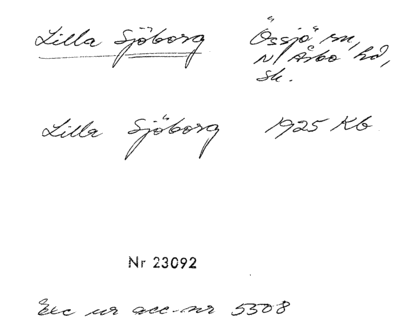 Lilla Sjöborg "Össjö" sn,
N Åsbo hd,
Sk.
Lilla Sjöborg 1925 Kb
Nr 23092
Exc ur acc-nr 5508